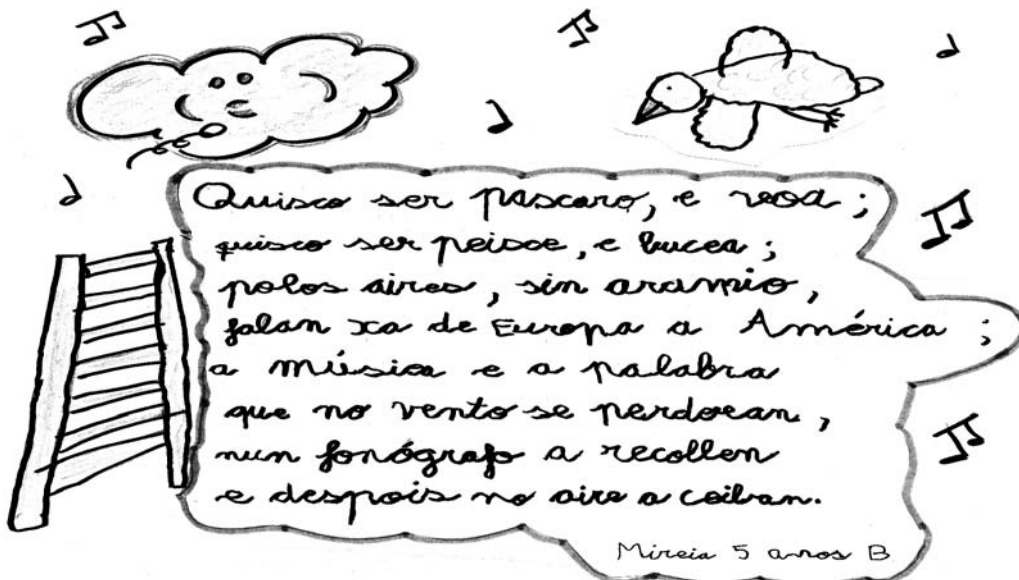 Quisco ser páscaro, e voa;
quisco ser peisce, e bucea;
polos aires, sin aramio,
falan xa de Europa a América;
a música e a palabra
que no vento se perdoean,
nun fonógrafo a recollen
e despois no aire a coiban.
Mireia 5 anos B